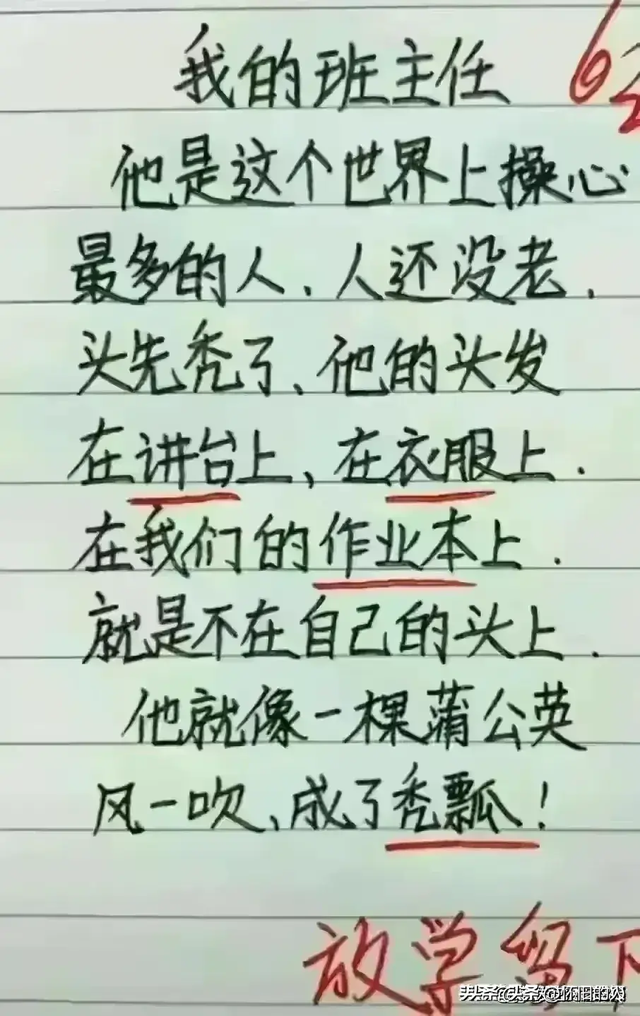 我的班主任
6
他是这个世界上操心
最多的人、人还没老.
头先秃了、他的头发
在讲台上、在衣服上.
在我们的作业本上.
就是不在自己的头上.
他就像一棵蒲公英
风一吹、成了秃瓢！
放学留下